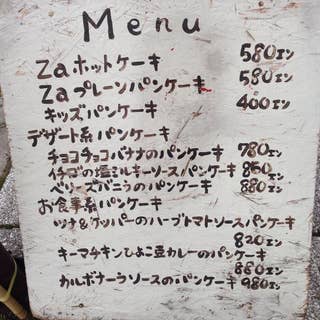 Menu
Zaホットケーキ 580エン
Zaプレーンパンケーキ 580エン
キッズパンケーキ 400エン
デザート系パンケーキ
チョコチョコバナナのパンケーキ 780エン
イチゴの塩ミルキーソースパンケーキ 860エン
ベリーズバニラのパンケーキ 880エン
お食事系パンケーキ
ツナ&ケッパーのハーブトマトソースパンケーキ
820エン
キーマチキンひよこ豆カレーのパンケーキ
880エン
カルボナーラソースのパンケーキ 980エン